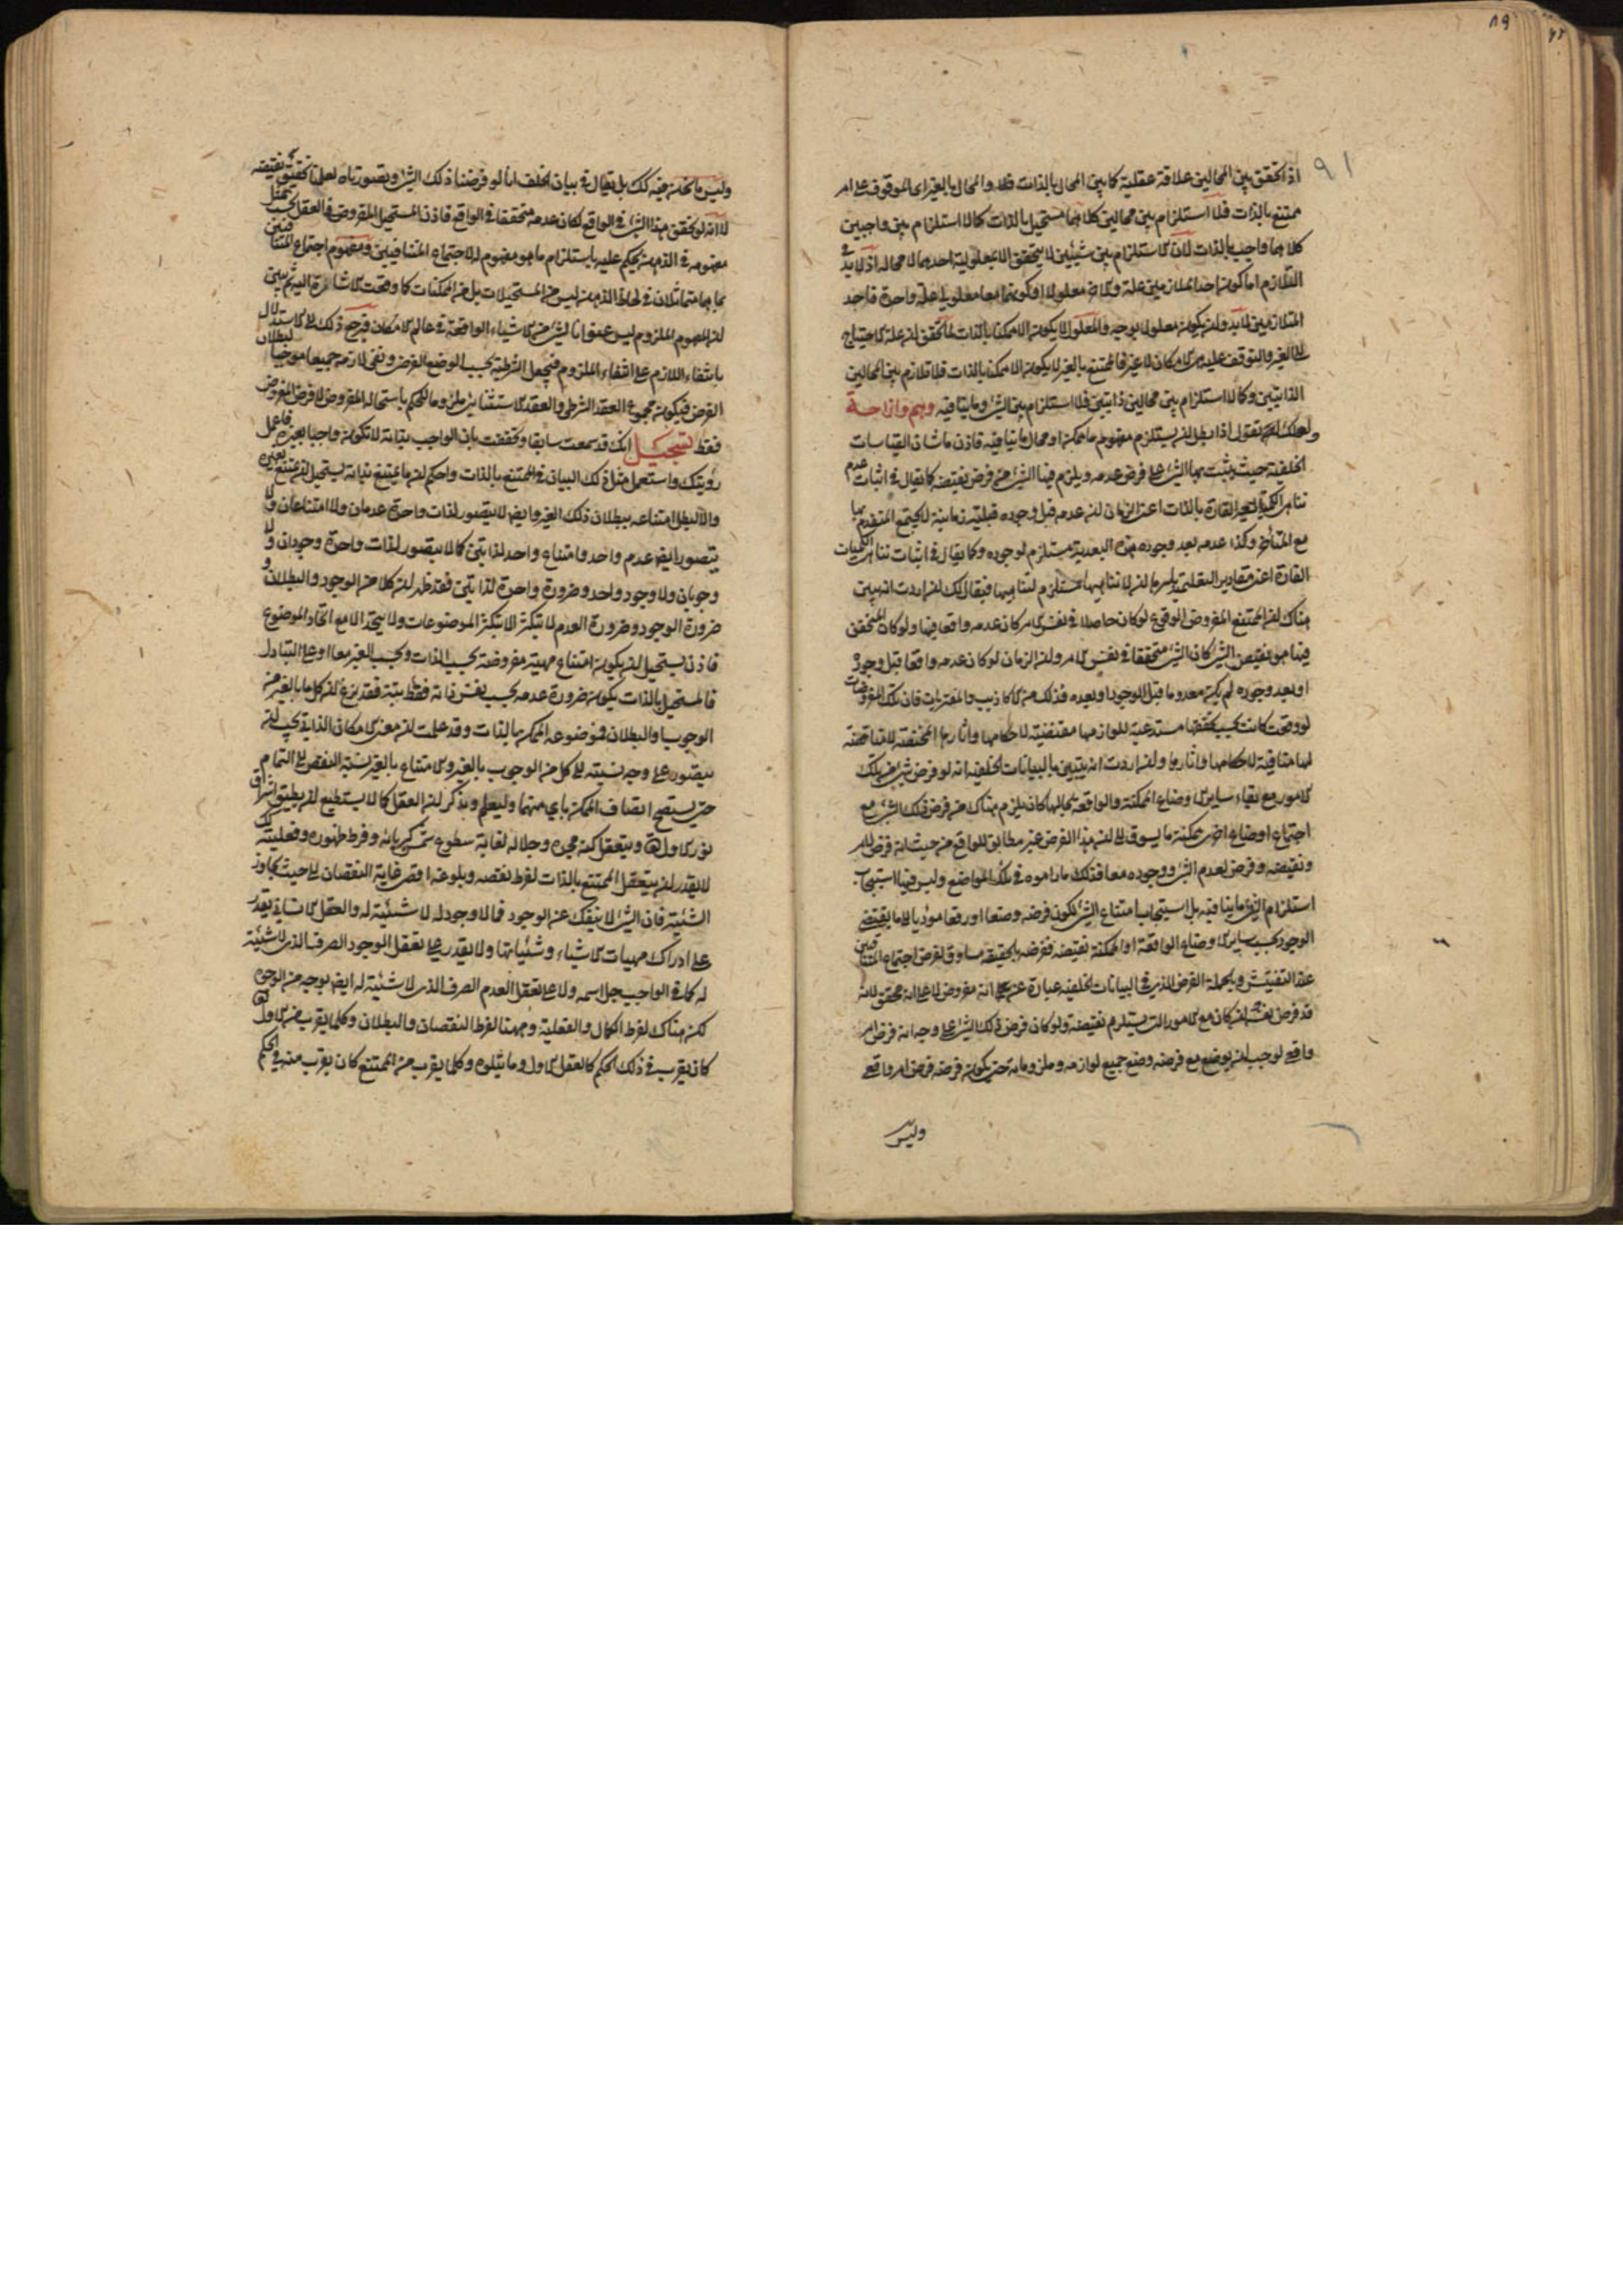 ٨٩
٩١
اذا تحقق بين المحالين علاقة عقلية كما بين المحال بالذات والمحال بالغير اى الموقوف على امر
ممتنع بالذات فلا استلزام بين محالين كلاهما مستحيل بالذات كما لا استلزام بين واجبين
كلاهما واجب بالذات لان الاستلزام بين شيئين لا يتحقق الا بمعلولية احدهما لا محالة اذ لا بد في
التلازم اما كون احد المتلازمين علة والاخر معلولا او كونهما معا معلولي علة واحدة فاحد
المتلازمين لا بد وان يكون معلولا بوجه والمعلول لا يكون الا ممكنا بالذات لما تحقق ان علة الاحتياج
الى الغير والتوقف عليه هى الامكان لا غير فالممتنع بالغير لا يكون الا ممكنا بالذات فلا تلازم بين المحالين
الذاتيين وكما لا استلزام بين محالين ذاتيين فلا استلزام بين الشئ وما ينافيه وهم وازاحة
ولعلك تقول اذا بطل ان يستلزم مفهوم ما ممكن او محال ما ينافيه فاذن ما شان القياسات
الخلفية حيث يثبت بها الشئ على فرض عدمه ويلزم فيها الشئ من فرض نقيضه كما يقال في اثبات عدم
تناهى الكمية الغير القارة بالذات اعنى الزمان ان عدمه قبل وجوده قبلية زمانية لا يجتمع المتقدم بها
مع المتأخر وكذا عدمه بعد وجوده هذه البعدية مستلزم لوجوده وكما يقال في اثبات تناهى الكميات
القارة اعنى مقادير التعليمية باسرها ان لا تناهيها مستلزم لتناهيها فيقال لك ان اردت انه يبين
هناك ان الممتنع المفروض الوقوع لو كان حاصلا في نفس الامر كان عدمه واقعا فيها ولو كان المتحقق
فيها هو نقيض الشئ كان الشئ متحققا في نفس الامر وان الزمان لو كان عدمه واقعا قبل وجوده
او بعد وجوده لم يكن معدوما قبل الوجود او بعده فذلك من الاكاذيب والمفتريات فان تلك المفروضات
لو وقعت كانت بحسب تحققها مستدعية للوازمها مقتضية لاحكامها واثارها المختصة لا مناقضة
لها منافية لاحكامها واثارها وان اردت انه يتبين بالبيانات الخلفية انه لو فرض شئ من تلك
الامور مع بقاء ساير الاوضاع الممكنة والواقعة بحالها كان يلزم هناك من فرض ذلك الشئ مع
اجتماع اوضاع اخرى ممكنة ما يسوق الى ان هذا الفرض غير مطابق للواقع من حيث انه فرض لامر
ونقيضه وفرض لعدم الشئ ووجوده معا فذلك ما راموه في تلك المواضع وليس فيها استيجاب
استلزام الشئ ما ينافيه بل استيجاب امتناع الشئ لكون فرضه وضعا او رفعا مؤديا الى ما يقتضى
الوجود بحسب ساير الاوضاع الواقعة او الممكنة نقيضه ففرضه بالحقيقة مساوق لفرض اجتماع المتنافيين
عند التفتيش وبالجملة الفرض الذى في البيانات الخلفية عبارة عن انه مفروض لا على انه متحقق لانه
قد فرض نفسه ان كان مع الامور التى يستلزم نقيضه ولو كان فرض ذلك الشئ على وجه انه فرض امر
واقع لوجب ان يوضع مع فرضه وضع جميع لوازمه وملزوماته حتى يكون فرضه فرض امر واقع
وليس
وليس ما نحن فيه كذلك بل يقال في بيان الخلف انا لو فرضنا ذلك الشئ وتصورناه لعلمنا تحقق نقيضه
لا انه لو تحقق هذا الشئ في الواقع لكان عدمه متحققا في الواقع فاذن المستحيل المفروض في العقل بحسب تمثل
مفهومه في الذهن يحكم عليه باستلزام ما هو مفهوم الاجتماع المتنافيين ومفهوم اجتماع المتنافيين
بما هما متمثلان في لحاظ الذهن ليس من المستحيلات بل من الممكنات كما وقعت الاشارة اليه ثم يتبين
ان المفهوم الملزوم ليس عنوانا لشئ من الاشياء الواقعة في عالم الامكان فيرجع ذلك الى الاستدلال
بانتفاء اللازم على انتفاء الملزوم فيجعل الشرطية بحسب الوضع الفرض ونفى لازمه جميعا موجبا لبطلان
الفرض فيكون مجموع العقد الشرطى والعقد الاستثنائى ملزوما للحكم باستحالة المفروض لا فرض المفروض
فقط تسجيل انك قد سمعت سابقا وتحققت بان الواجب بذاته لا تكون واجبا بغيره فاعمل
رويتك واستعمل مثل ذلك البيان في الممتنع بالذات واحكم ان ما يمتنع بذاته يستحيل ان يمتنع بغيره
والا لبطل امتناعه ببطلان ذلك الغير وايضا لا يتصور لذات واحدة عدمان ولا امتناعان ولا
يتصور ايضا عدم واحد وامتناع واحد لذاتين كما لا يتصور لذات واحدة وجودان ولا
وجوبان ولا وجود واحد وضرورة واحدة لذاتين فقد ظهر ان كلا من الوجود والبطلان و
ضرورة الوجود وضرورة العدم لا يتكثر الا بتكثر الموضوعات ولا يتحد الا مع اتحاد الموضوع
فاذن يستحيل ان يكون امتناع مهية مفروضة بحسب الذات وبحسب الغير معا او على التبادل
فالمستحيل بالذات يكون ضرورة عدمه بحسب نفس ذاته فقط بتة فقد بزغ ان كل ما بالغير من
الوجوب والبطلان فموضوعه الممكن بالذات وقد علمت ان معنى الامكان الذاتى يجب ان
يتصور على وجه نسبته الى كل من الوجوب بالغير والامتناع بالغير نسبة النقص الى التمام
حتى يستصح اتصاف الممكن باى منهما وليعلم ويذكر ان العقل كما لا يستطيع ان يطيق اشراق
نور الاول تعالى ويتعقل كنه مجده وجلاله لغاية سطوع شمس كبريائه وفرط ظهوره وفعليته كذلك
لا يقدر ان يتعقل الممتنع بالذات لفرط نقصه وبلوغه اقصى غاية النقصان الى حيث تجاوز
الشيئية فان الشئ لا ينفك عن الوجود فما لا وجود له لا شيئية له والعقل الانسانى يقدر
على ادراك مهيات الاشياء وشيئياتها ولا يقدر على تعقل الوجود الصرف الذى لا شيئية
له كما في الواجب جل اسمه ولا على تعقل العدم الصرف الذى لا شيئية له ايضا بوجه من الوجوه
لكن هناك لفرط الكمال والفعلية وههنا لفرط النقصان والبطلان وكلما يقرب من الاول تعالى
كان يقرب في ذلك الحكم كالعقل الاول وما يتلوه وكلما يقرب من الممتنع كان يقرب منه في الحكم